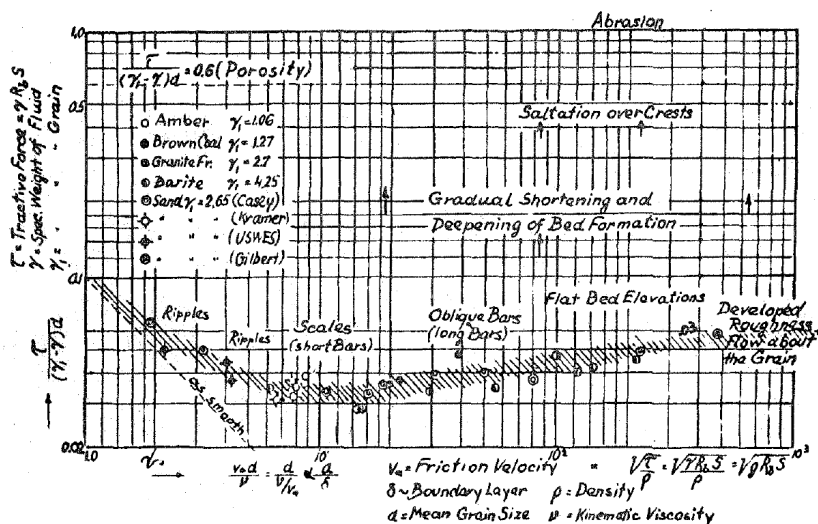 Abrasion
1.0
τ/((γ₁-γ)d) = 0.6 (Porosity)
0.5
○ Amber γ₁=1.06
Brown Coal γ₁=1.27
Granite Fr. γ₁=2.7
Barite γ₁=4.25
Sand γ₁=2.65 (Casey)
" " (Kramer)
" " (USWES)
" " (Gilbert)
Saltation over Crests
Gradual Shortening and
Deepening of Bed Formation
τ = Tractive Force = γ R_b S
γ = Spec. Weight of Fluid
γ₁ = " " " Grain
0.1
Ripples
Ripples
Scales
(short Bars)
Oblique Bars
(long Bars)
Flat Bed Elevations
Developed
Roughness
Flow about
the Grain
τ/((γ₁-γ)d)
smooth
0.02
1.0
10¹
10²
10³
v*d/ν = d/(ν/v*) ∝ d/δ
v* = Friction Velocity = √(τ/ρ) = √(γR_bS/ρ) = √(gR_bS)
δ ~ Boundary Layer ρ = Density
d = Mean Grain Size ν = Kinematic Viscosity